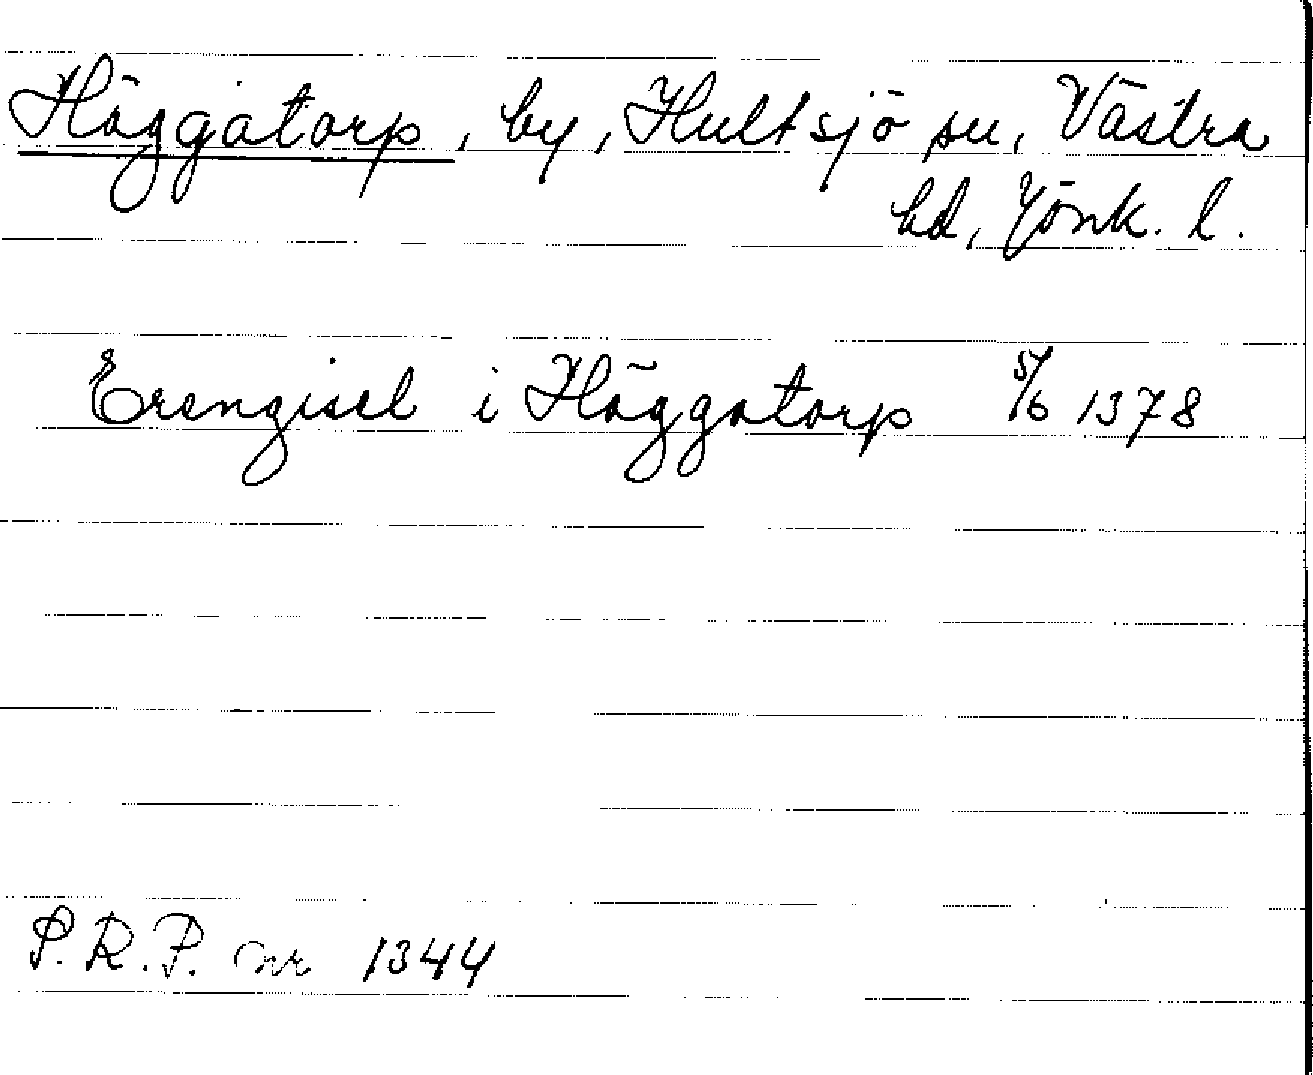 Häggatorp, by, Hultsjö sn, Västra
hd, Jönk. l.
Erengisel i Häggatorp 5/6 1378
S.R.P. nr 1344